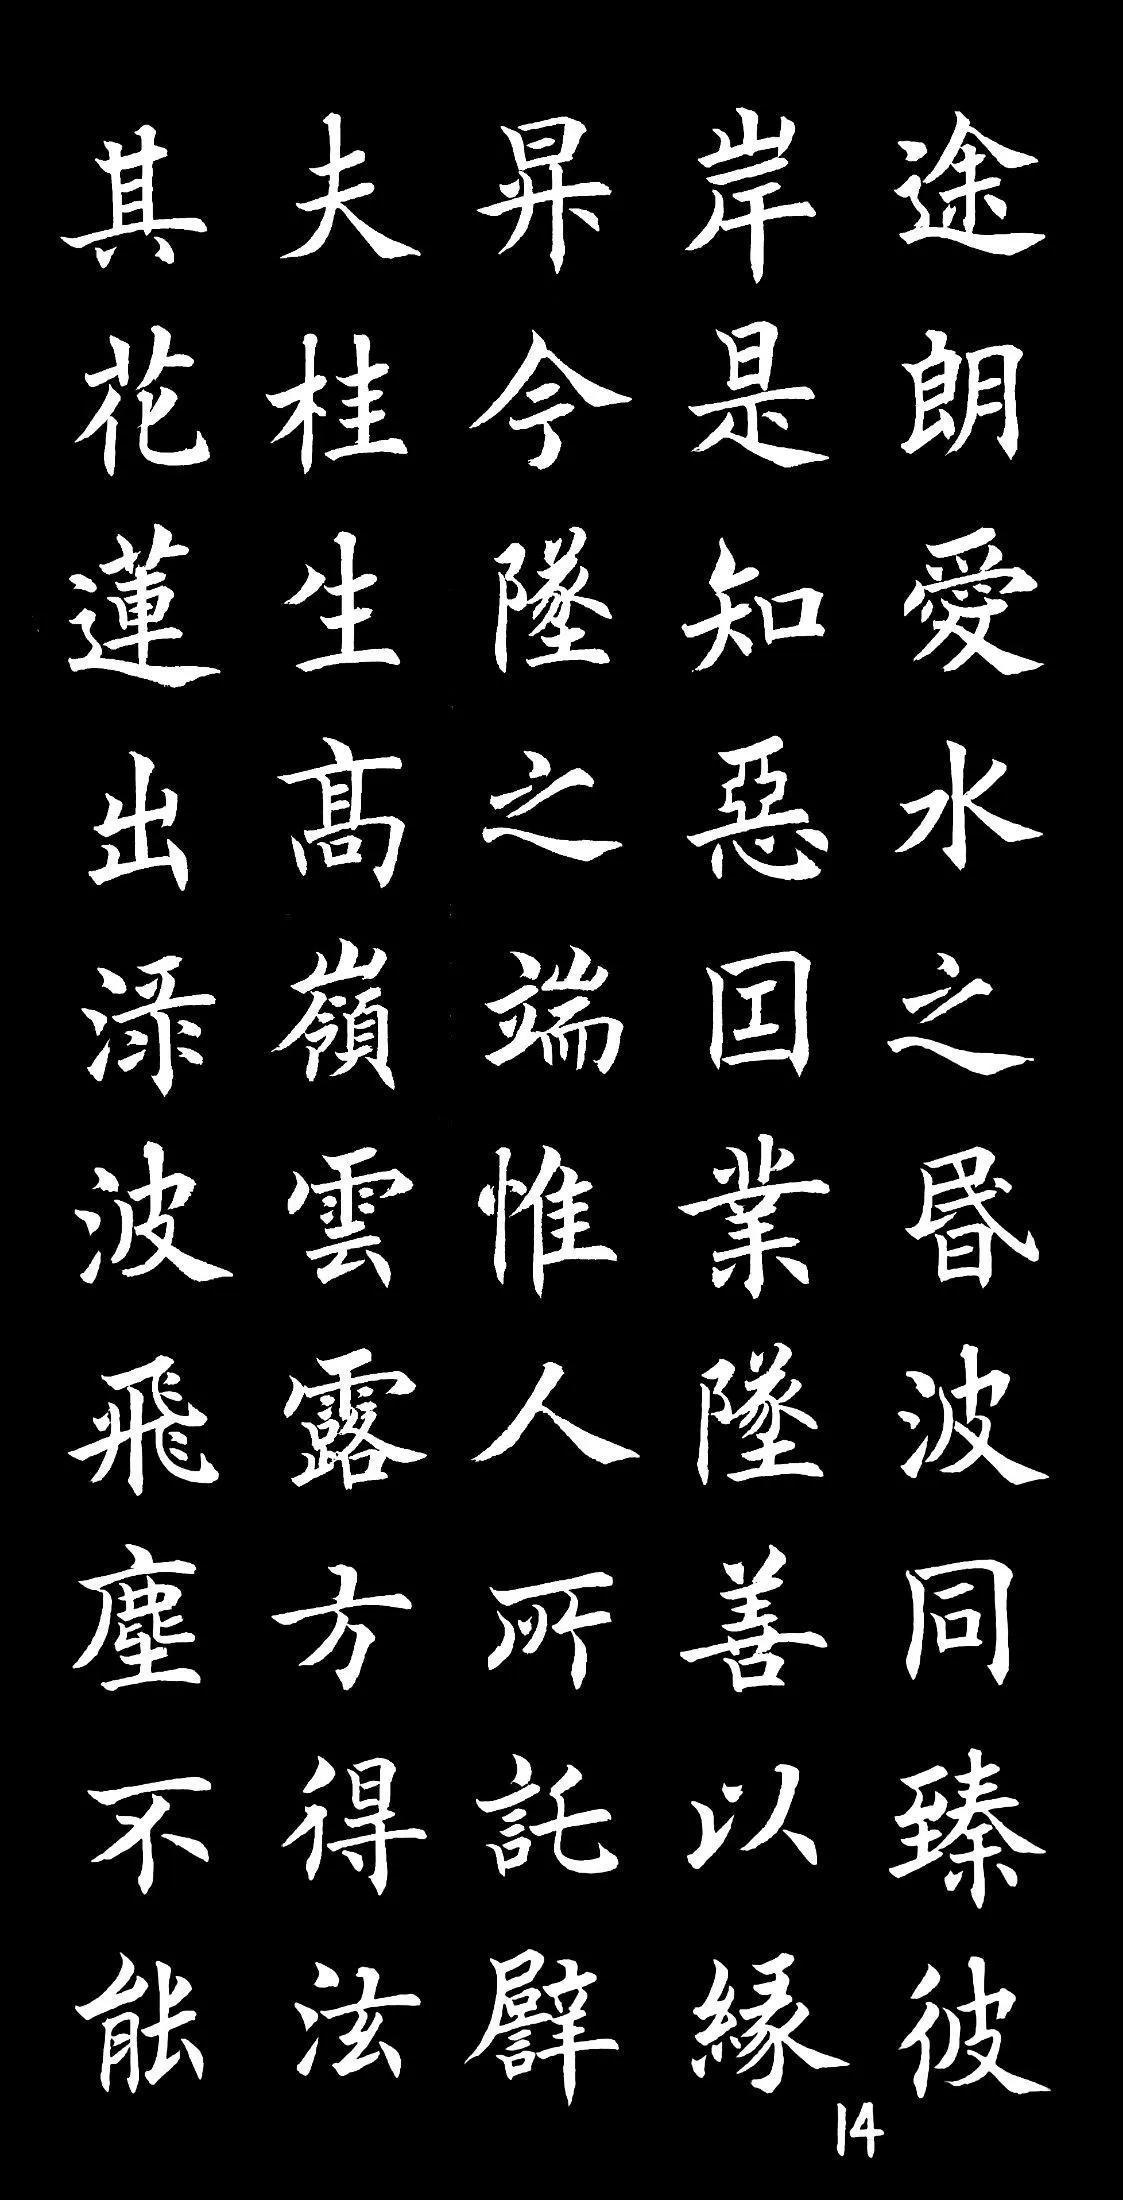 途朗愛水之昏波同臻彼
岸是知惡囙業墜善以緣
昇今墜之端惟人所託譬
夫桂生高嶺雲露方得泫
其花蓮出淥波飛塵不能
14